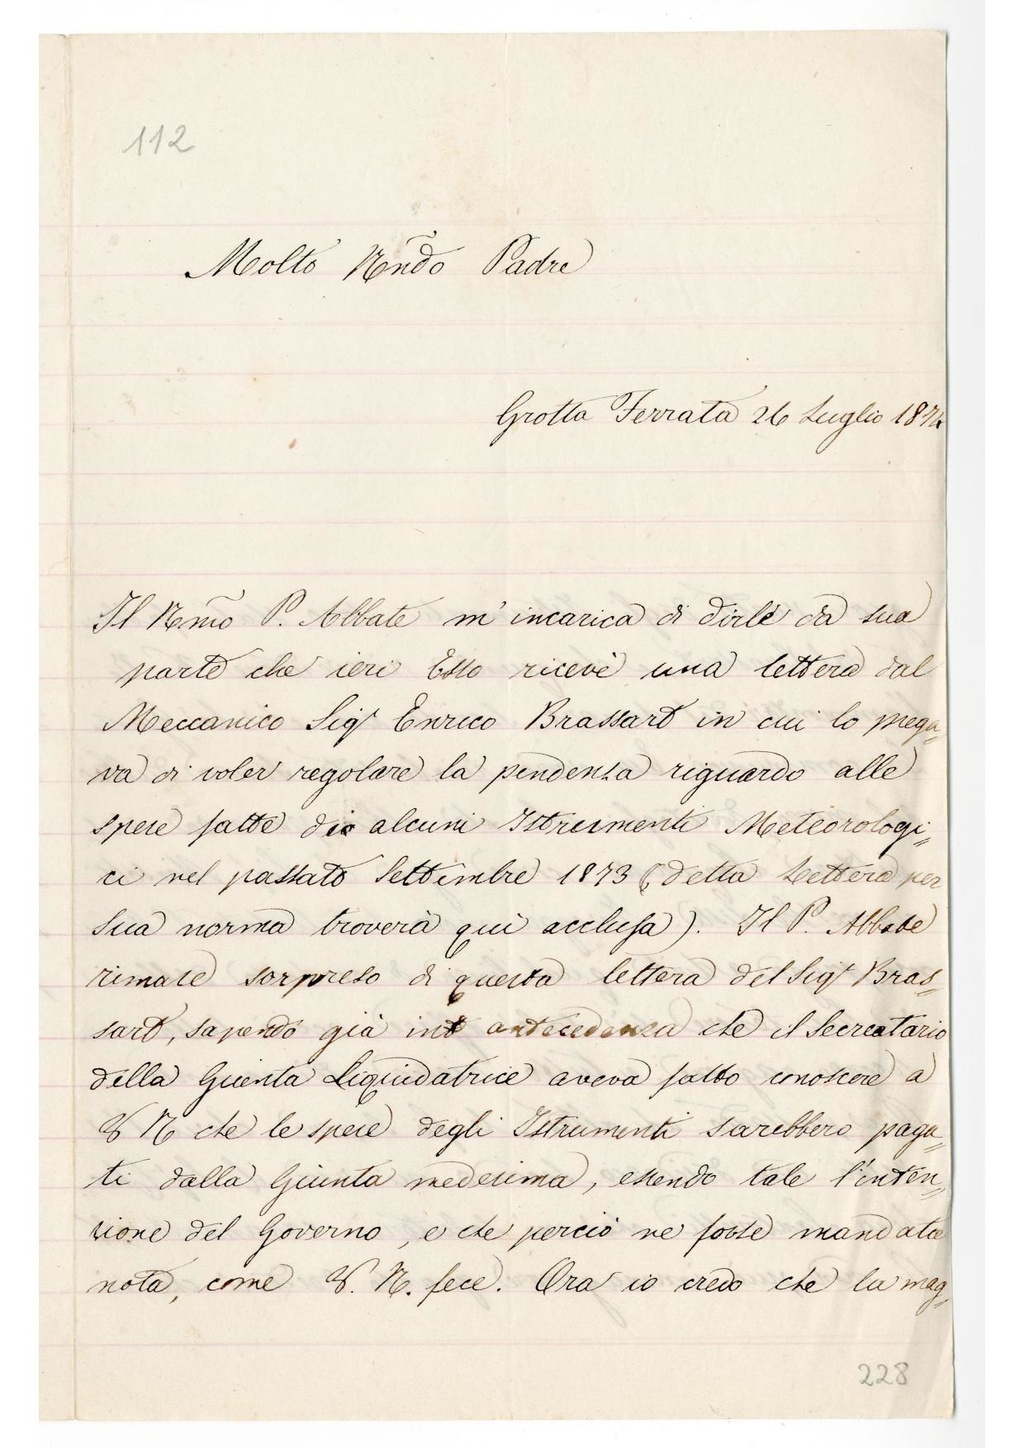 112
Molto Rñdo Padre
Grotta Ferrata 26 Luglio 1874
Il Rm̃o P. Abbate m'incarica di dirle da sua
parte che ieri Esso ricevè una lettera dal
Meccanico Sigr Enrico Brassart in cui lo prega„
va di voler regolare la pendenza riguardo alle
spese fatte di alcuni Istrumenti Meteorologi„
ci nel passato Settembre 1873 (detta Lettera per
sua norma troverà quì acclusa). Il P. Abbate
rimase sorpreso di questa lettera del Sigr Bras„
sart, sapendo già in antecedenza che il Secreatario
della Giunta Liquidatrice aveva fatto conoscere a
V R che le spese degli Istrumenti sarebbero paga„
ti dalla Giunta medesima, essendo tale l'inten„
zione del Governo, e che perciò ne fosse mandata
nota, come V. R. fece. Ora io credo che la mag„
228